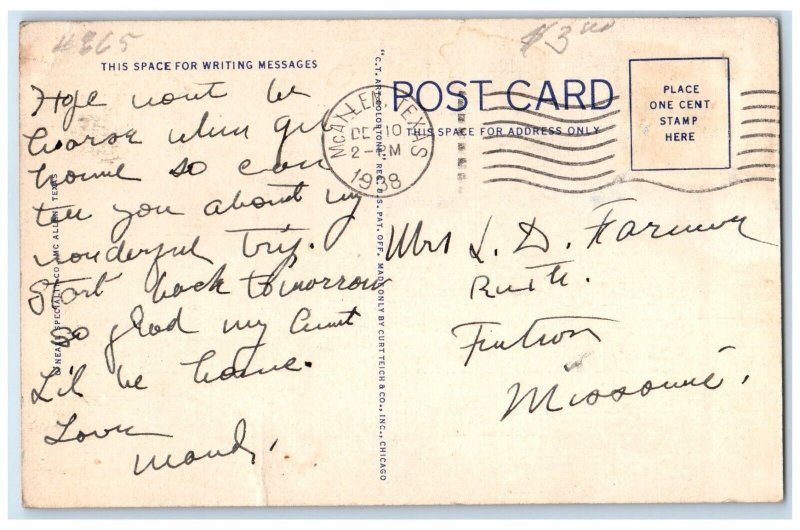 #865
$3.00
THIS SPACE FOR WRITING MESSAGES
Hope wont be
hoarse when get
home so can
tell you about my
wonderful trip.
Start back tomorrow
so glad my Aunt
Lil be home.
Love
"C.T. ART-COLORTONE" REG. U.S. PAT. OFF. MADE ONLY BY CURT TEICH & CO., INC., CHICAGO
POST CARD
THIS SPACE FOR ADDRESS ONLY
McALLEN, TEXAS
DEC 10
2-PM
PLACE
ONE CENT
STAMP
HERE
Mrs L. D. Farmer
Missouri.